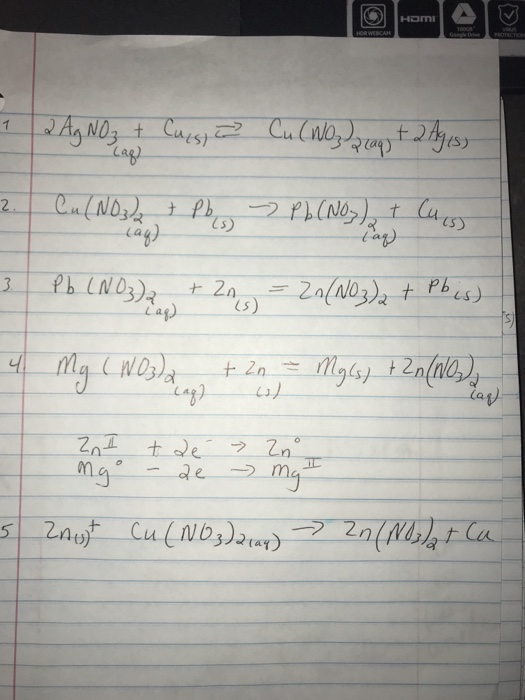 HD WEBCAM HDMI Google Drive PROTECTION
1 2AgNO3(aq) + Cu(s) ⇄ Cu(NO3)2(aq) + 2Ag(s)
2. Cu(NO3)2(aq) + Pb(s) → Pb(NO3)2(aq) + Cu(s)
3. Pb(NO3)2(aq) + Zn(s) = Zn(NO3)2 + Pb(s)
s)
4 Mg(NO3)2(aq) + Zn(s) = Mg(s) + Zn(NO3)2(aq)
Zn^II + 2e^- → Zn°
Mg° - 2e → Mg^II
5 Zn(s)+ Cu(NO3)2(aq) → Zn(NO3)2 + Cu